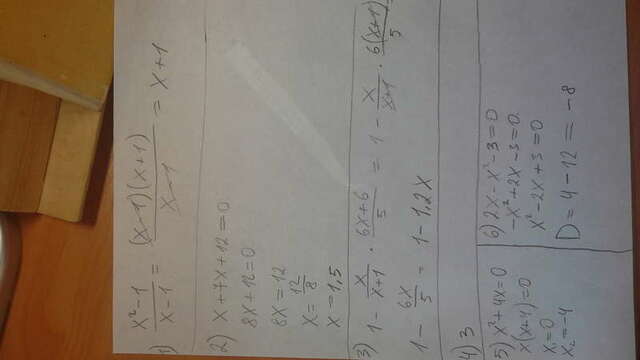 1) x²-1/x-1 = (x-1)(x+1)/x-1 = x+1
2) x+7x+12=0
8x+12=0
8x=12
x=12/8
x=1,5
3) 1 - x/x+1 · 6x+6/5 = 1 - x/x+1 · 6(x+1)/5
1 - 6x/5 = 1-1,2x
4) 3
5) x²+4x=0
x(x+4)=0
x₁=0
x₂=-4
6) 2x-x²-3=0
-x²+2x-3=0
x²-2x+3=0
D=4-12=-8